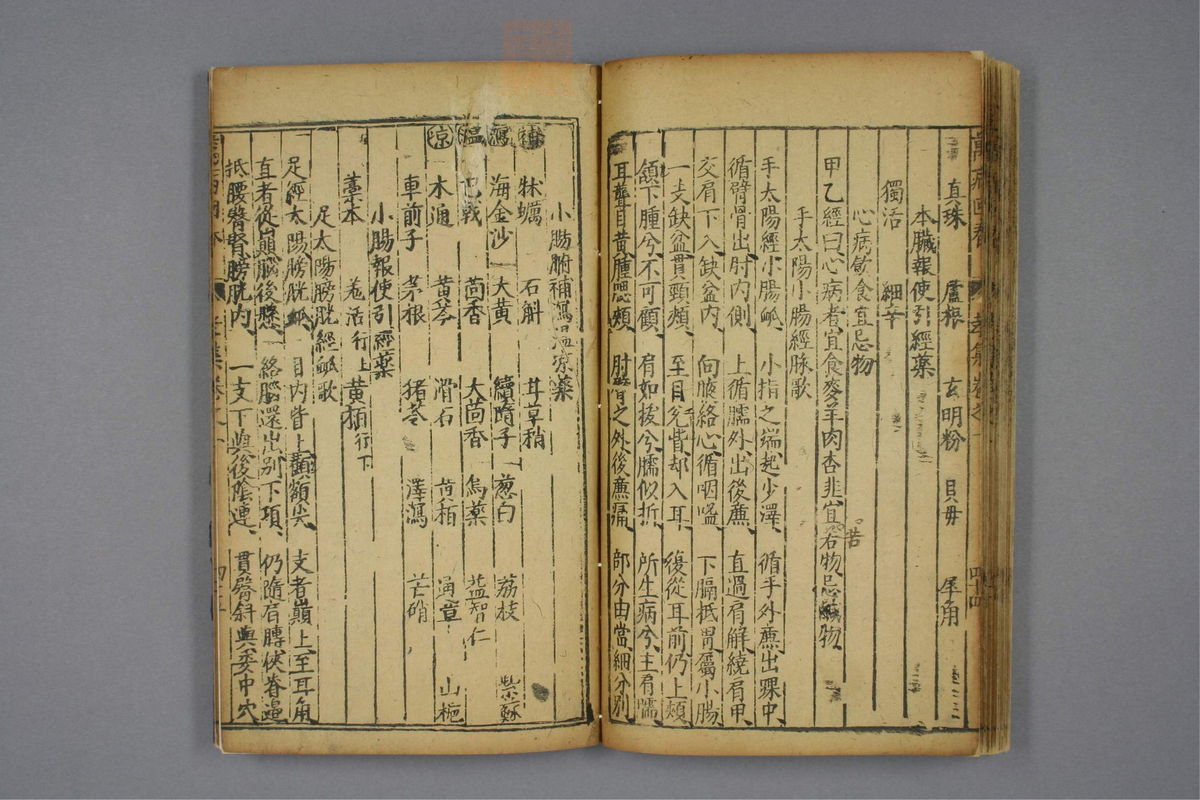 萬病回春
真珠 蘆根 玄明粉 貝母 犀角
本臟報使引經藥
獨活 細辛
心病飲食宜忌物
甲乙經曰心病者宜食麥羊肉杏韭宜苦物忌鹹物
手太陽小腸經脉歌
手太陽經小腸脉 小指之端起少澤 循手外廉出踝中
循臂骨出肘内側 上循臑外出後廉 直過肩解繞肩甲
交肩下入缺盆内 向腋絡心循咽嗌 下膈抵胃屬小腸
一支缺盆貫頸頰 至目兊眥却入耳 復從耳前仍上頰
頷下腫兮不可顧 肩如拔兮臑似折 所生病兮主肩臑
耳聾目黄腫腮頰 肘臂之外後廉痛 部分由當細分别
小腸腑補瀉温凉藥
牡蠣 石斛 甘草稍
瀉 海金沙 大黄 續隨子 葱白 荔枝 紫蘇
温 巴戟 茴香 大茴香 烏薬 益智仁
凉 木通 黄芩 滑石 黄栢 通草 山栀
車前子 茅根 猪苓 澤瀉 芒硝
小腸報使引經藥
藁本 羗活行上 黄栢行下
足太陽膀胱經脉歌
足經太陽膀胱脉 目内眥上額尖 支者巔上至耳角
直者從巔腦後懸 絡腦還出别下項 仍隨肩膊俠脊邊
抵腰膂腎膀胱内 一支下與後陰連 貫臀斜與委中穴